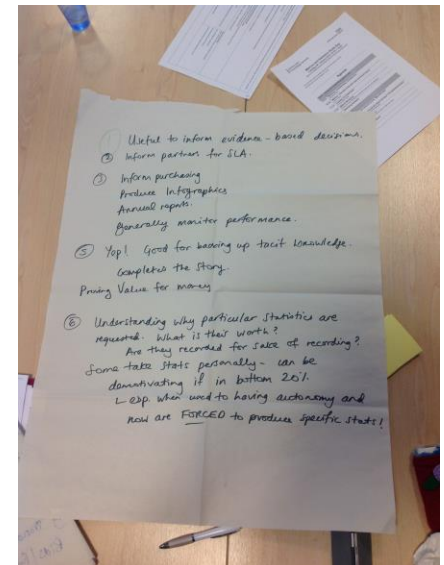 ① Useful to inform evidence - based decisions.
② Inform partners for SLA.
③ Inform purchasing
Produce Infographics
Annual reports.
Generally monitor performance.
⑤ Yep! Good for backing up tacit knowledge.
Completes the story.
Proving Value for money
⑥ Understanding why particular statistics are
requested. What is their worth?
Are they recorded for sake of recording?
Some take stats personally - can be
demotivating if in bottom 20%.
↳ esp when used to having autonomy and
now are FORCED to produce specific stats!